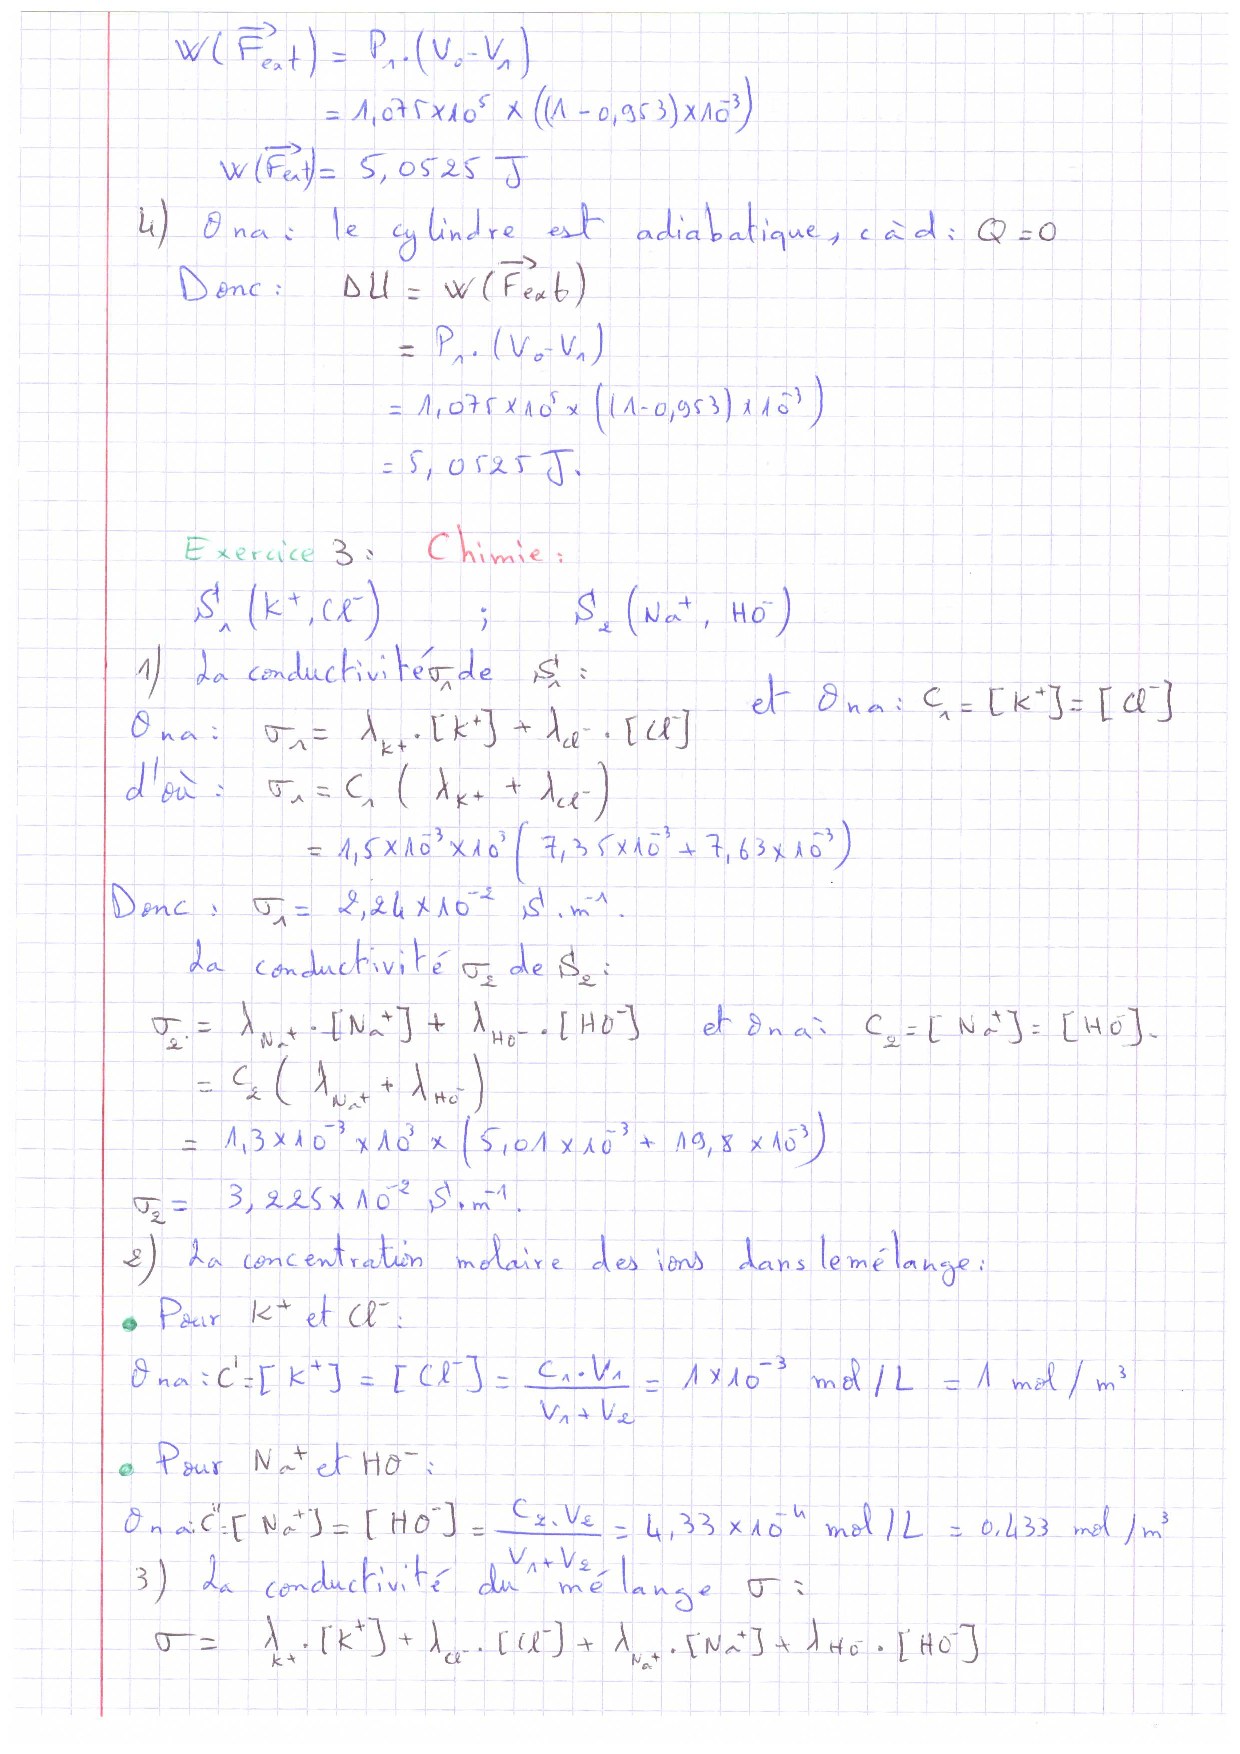 W(F⃗ext) = P₁.(V₀-V₁)
= 1,075×10⁵ × ((1-0,953)×10⁻³)
W(F⃗ext) = 5,0525 J
4) Ona: le cylindre est adiabatique, càd: Q=0
Donc: ΔU = W(F⃗ext)
= P₁.(V₀-V₁)
= 1,075×10⁵ × ((1-0,953)×10⁻³)
= 5,0525 J.
Exercice 3: Chimie:
S₁(K⁺, Cl⁻) ; S₂(Na⁺, HO⁻)
1) La conductivité σ₁ de S₁:
et Ona: C₁ = [K⁺] = [Cl⁻]
Ona: σ₁ = λK⁺.[K⁺] + λCl⁻.[Cl⁻]
d'où: σ₁ = C₁(λK⁺ + λCl⁻)
= 1,5×10⁻³×10³(7,35×10⁻³ + 7,63×10⁻³)
Donc: σ₁ = 2,24×10⁻² S.m⁻¹.
La conductivité σ₂ de S₂:
σ₂ = λNa⁺.[Na⁺] + λHO⁻.[HO⁻] et Ona: C₂ = [Na⁺] = [HO⁻].
= C₂(λNa⁺ + λHO⁻)
= 1,3×10⁻³×10³×(5,01×10⁻³ + 19,8×10⁻³)
σ₂ = 3,225×10⁻² S.m⁻¹.
2) La concentration molaire des ions dans le mélange:
• Pour K⁺ et Cl⁻:
Ona: C' = [K⁺] = [Cl⁻] = C₁.V₁/(V₁+V₂) = 1×10⁻³ mol/L = 1 mol/m³
• Pour Na⁺ et HO⁻:
Ona: C'' = [Na⁺] = [HO⁻] = C₂.V₂/(V₁+V₂) = 4,33×10⁻⁴ mol/L = 0.433 mol/m³
3) La conductivité du mélange σ:
σ = λK⁺.[K⁺] + λCl⁻.[Cl⁻] + λNa⁺.[Na⁺] + λHO⁻.[HO⁻]